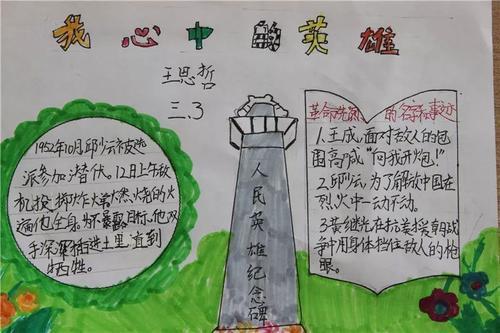 我心中的英雄
王思哲
三.3
1952年10月邱少云被选
派参加潜伏。12月上午敌
机投掷炸弹燃烧的火
遍他全身。为不暴露目标,他双
手深深插进土里直到
牺牲。
人民英雄纪念碑
革命先烈的名字和事迹
1.王成,面对敌人的包
围高喊“向我开炮!”
2.邱少云,为了解放中国在
烈火中一动不动。
3.黄继光在抗美援朝战
争中用身体挡住敌人的炮
眼。